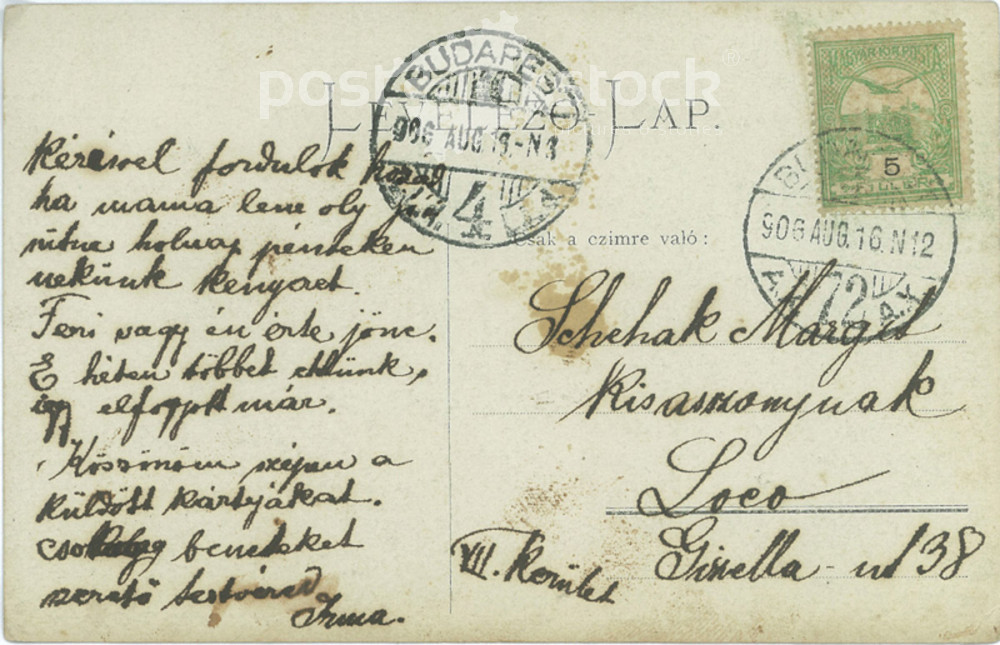 LEVELEZŐ-LAP.
BUDAPEST
906 AUG. 16.-N3
4
MAGYAR KIR. POSTA
5
FILLÉR
906 AUG. 16. N 12
72
Csak a czimre való:
Kéréssel fordulok hozzád
ha mama lene oly jó
sütne holnap pénteken
nekünk kenyeret.
Feri vagy én érte jöne.
E héten többet ettünk,
így elfogyott már.
Köszönöm szépen a
küldött kártyákat.
benneteket
szerető testvéred
Irma.
Schehak Margit
Kisasszonynak
Loco
VII. kerület
Gizella-ut 38